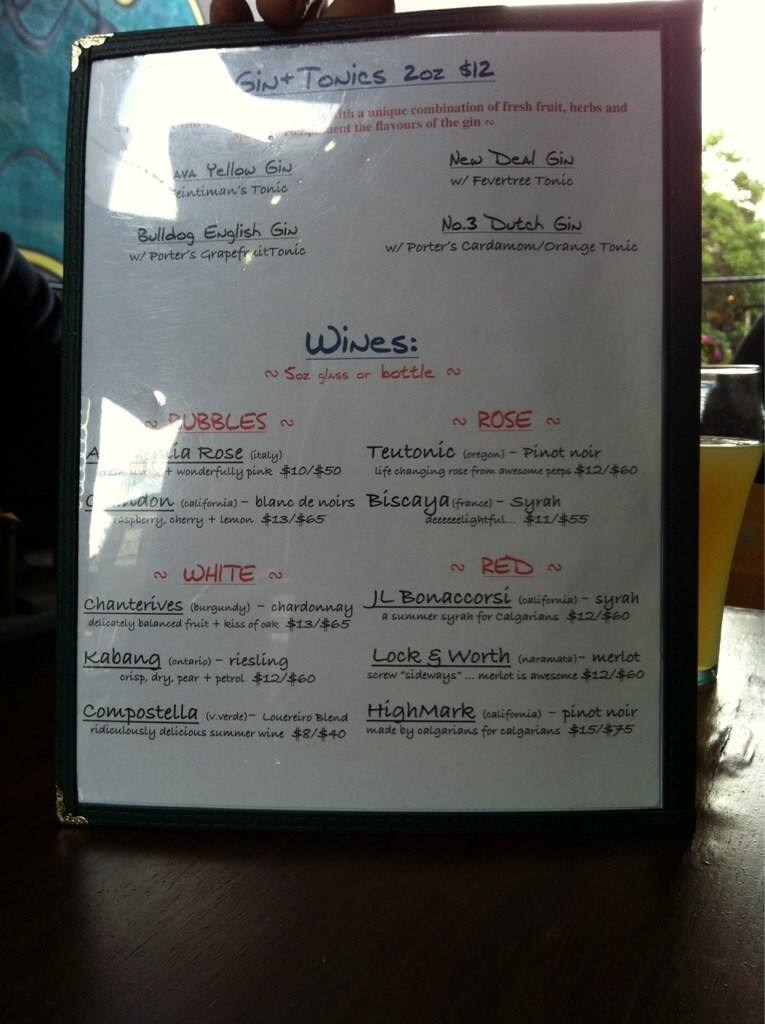 Gin + Tonics 2oz $12
with a unique combination of fresh fruit, herbs and
the flavours of the gin ~
Yellow Gin
Tonic
New Deal Gin
w/ Fevertree Tonic
Bulldog English Gin
w/ Porter's Grapefruit Tonic
No.3 Dutch Gin
w/ Porter's Cardamom/Orange Tonic
Wines:
~ 5oz glass or bottle ~
~ BUBBLES ~
Rose (italy)
+ wonderfully pink $10/$50
(california) - blanc de noirs
raspberry, cherry + lemon $13/$65
~ ROSE ~
Teutonic (oregon) - Pinot noir
life changing rose from awesome peeps $12/$60
Biscaya (france) - Syrah
deeeeelightful... $11/$55
~ WHITE ~
Chanterives (burgundy) - chardonnay
delicately balanced fruit + kiss of oak $13/$65
Kabang (ontario) - riesling
crisp, dry, pear + petrol $12/$60
Compostella (v.verde) - Louereiro Blend
ridiculously delicious summer wine $8/$40
~ RED ~
JL Bonaccorsi (california) - syrah
a summer syrah for Calgarians $12/$60
Lock & Worth (naramata) - merlot
screw "sideways" ... merlot is awesome $12/$60
HighMark (california) - pinot noir
made by calgarians for calgarians $15/$75